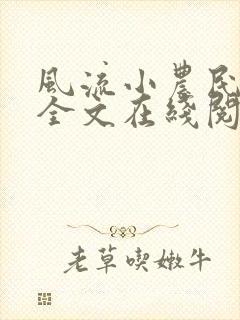 風流小農民
全文在綫閱
老草喫嫩牛